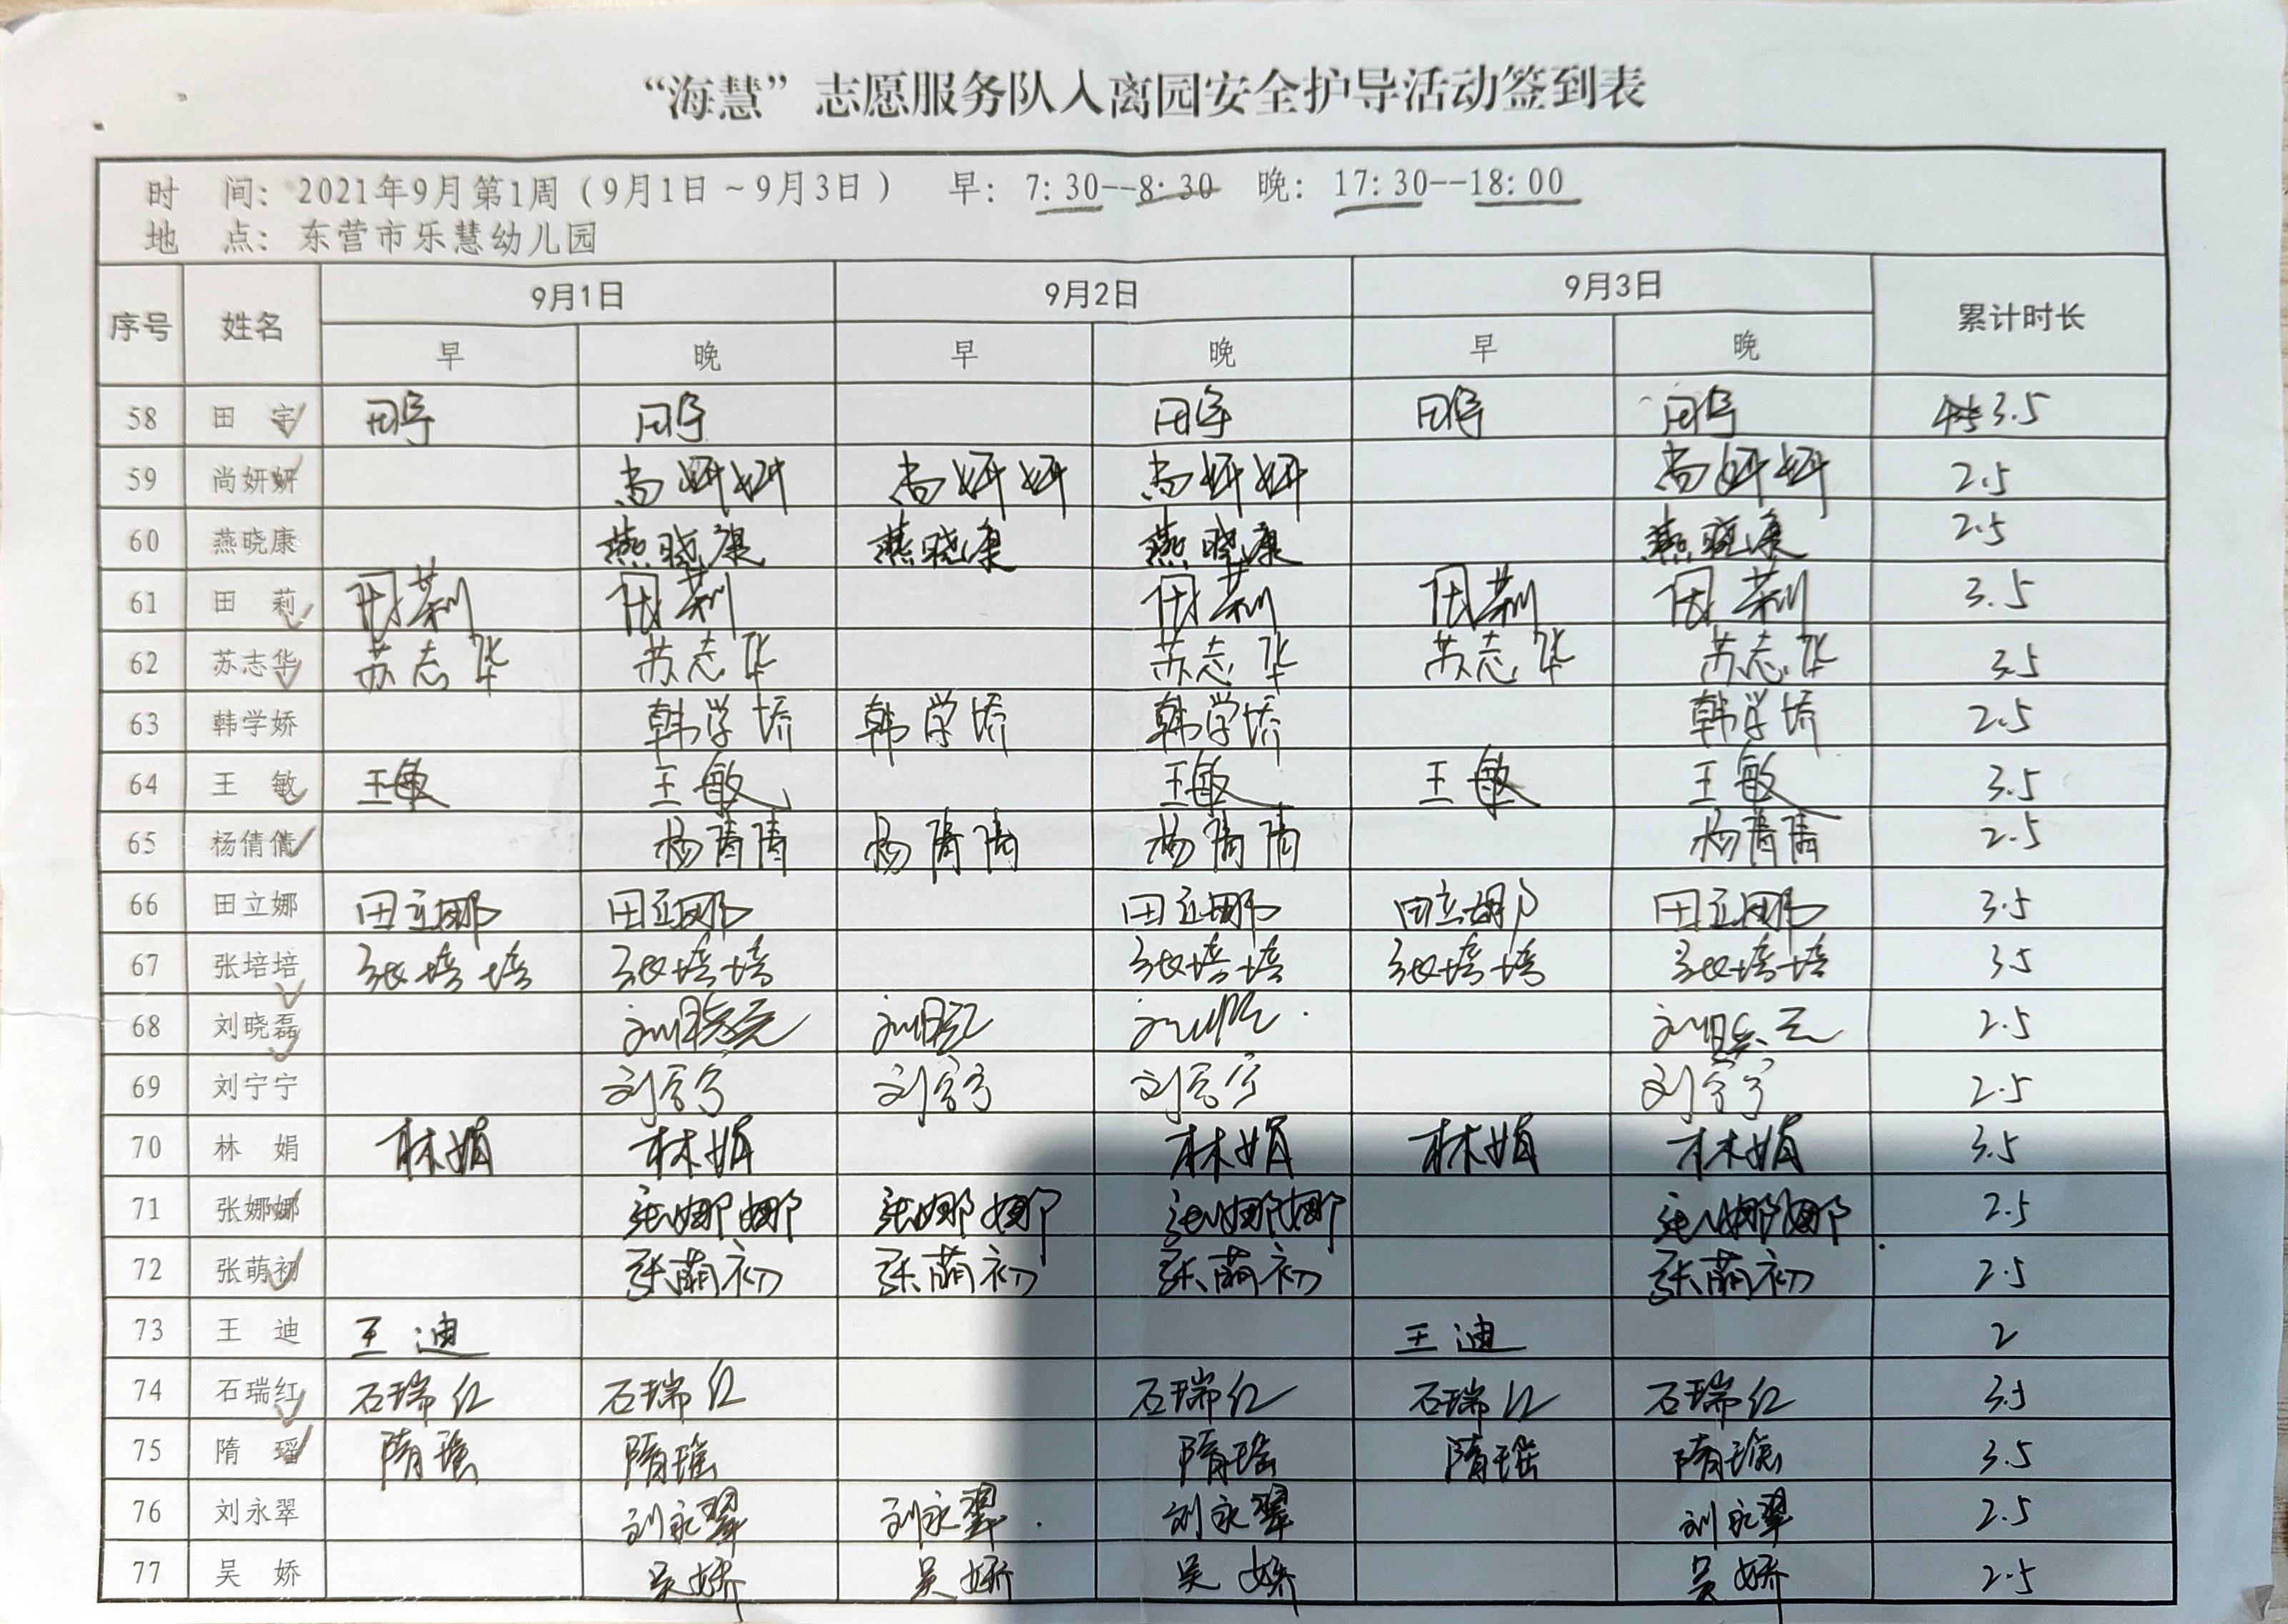 “海慧”志愿服务队入离园安全护导活动签到表
时 间：2021年9月第1周（9月1日～9月3日） 早：7:30--8:30 晚：17:30--18:00
地 点：东营市乐慧幼儿园
序号 姓名 9月1日 9月2日 9月3日 累计时长
早 晚 早 晚 早 晚
58 田 宇 田宇 田宇 田宇 田宇 田宇 3.5
59 尚妍妍 尚妍妍 尚妍妍 尚妍妍 尚妍妍 2.5
60 燕晓康 燕晓康 燕晓康 燕晓康 燕晓康 2.5
61 田 莉 田莉 田莉 田莉 田莉 田莉 3.5
62 苏志华 苏志华 苏志华 苏志华 苏志华 苏志华 3.5
63 韩学娇 韩学娇 韩学娇 韩学娇 韩学娇 2.5
64 王 敏 王敏 王敏 王敏 王敏 王敏 3.5
65 杨倩倩 杨倩倩 杨倩倩 杨倩倩 杨倩倩 2.5
66 田立娜 田立娜 田立娜 田立娜 田立娜 田立娜 3.5
67 张培培 张培培 张培培 张培培 张培培 张培培 3.5
68 刘晓磊 刘晓磊 刘晓磊 刘晓磊 刘晓磊 2.5
69 刘宁宁 刘宁宁 刘宁宁 刘宁宁 刘宁宁 2.5
70 林 娟 林娟 林娟 林娟 林娟 林娟 3.5
71 张娜娜 张娜娜 张娜娜 张娜娜 张娜娜 2.5
72 张萌初 张萌初 张萌初 张萌初 张萌初 2.5
73 王 迪 王迪 王迪 2
74 石瑞红 石瑞红 石瑞红 石瑞红 石瑞红 石瑞红 3.5
75 隋 瑶 隋瑶 隋瑶 隋瑶 隋瑶 隋瑶 3.5
76 刘永翠 刘永翠 刘永翠 刘永翠 刘永翠 2.5
77 吴 娇 吴娇 吴娇 吴娇 吴娇 2.5